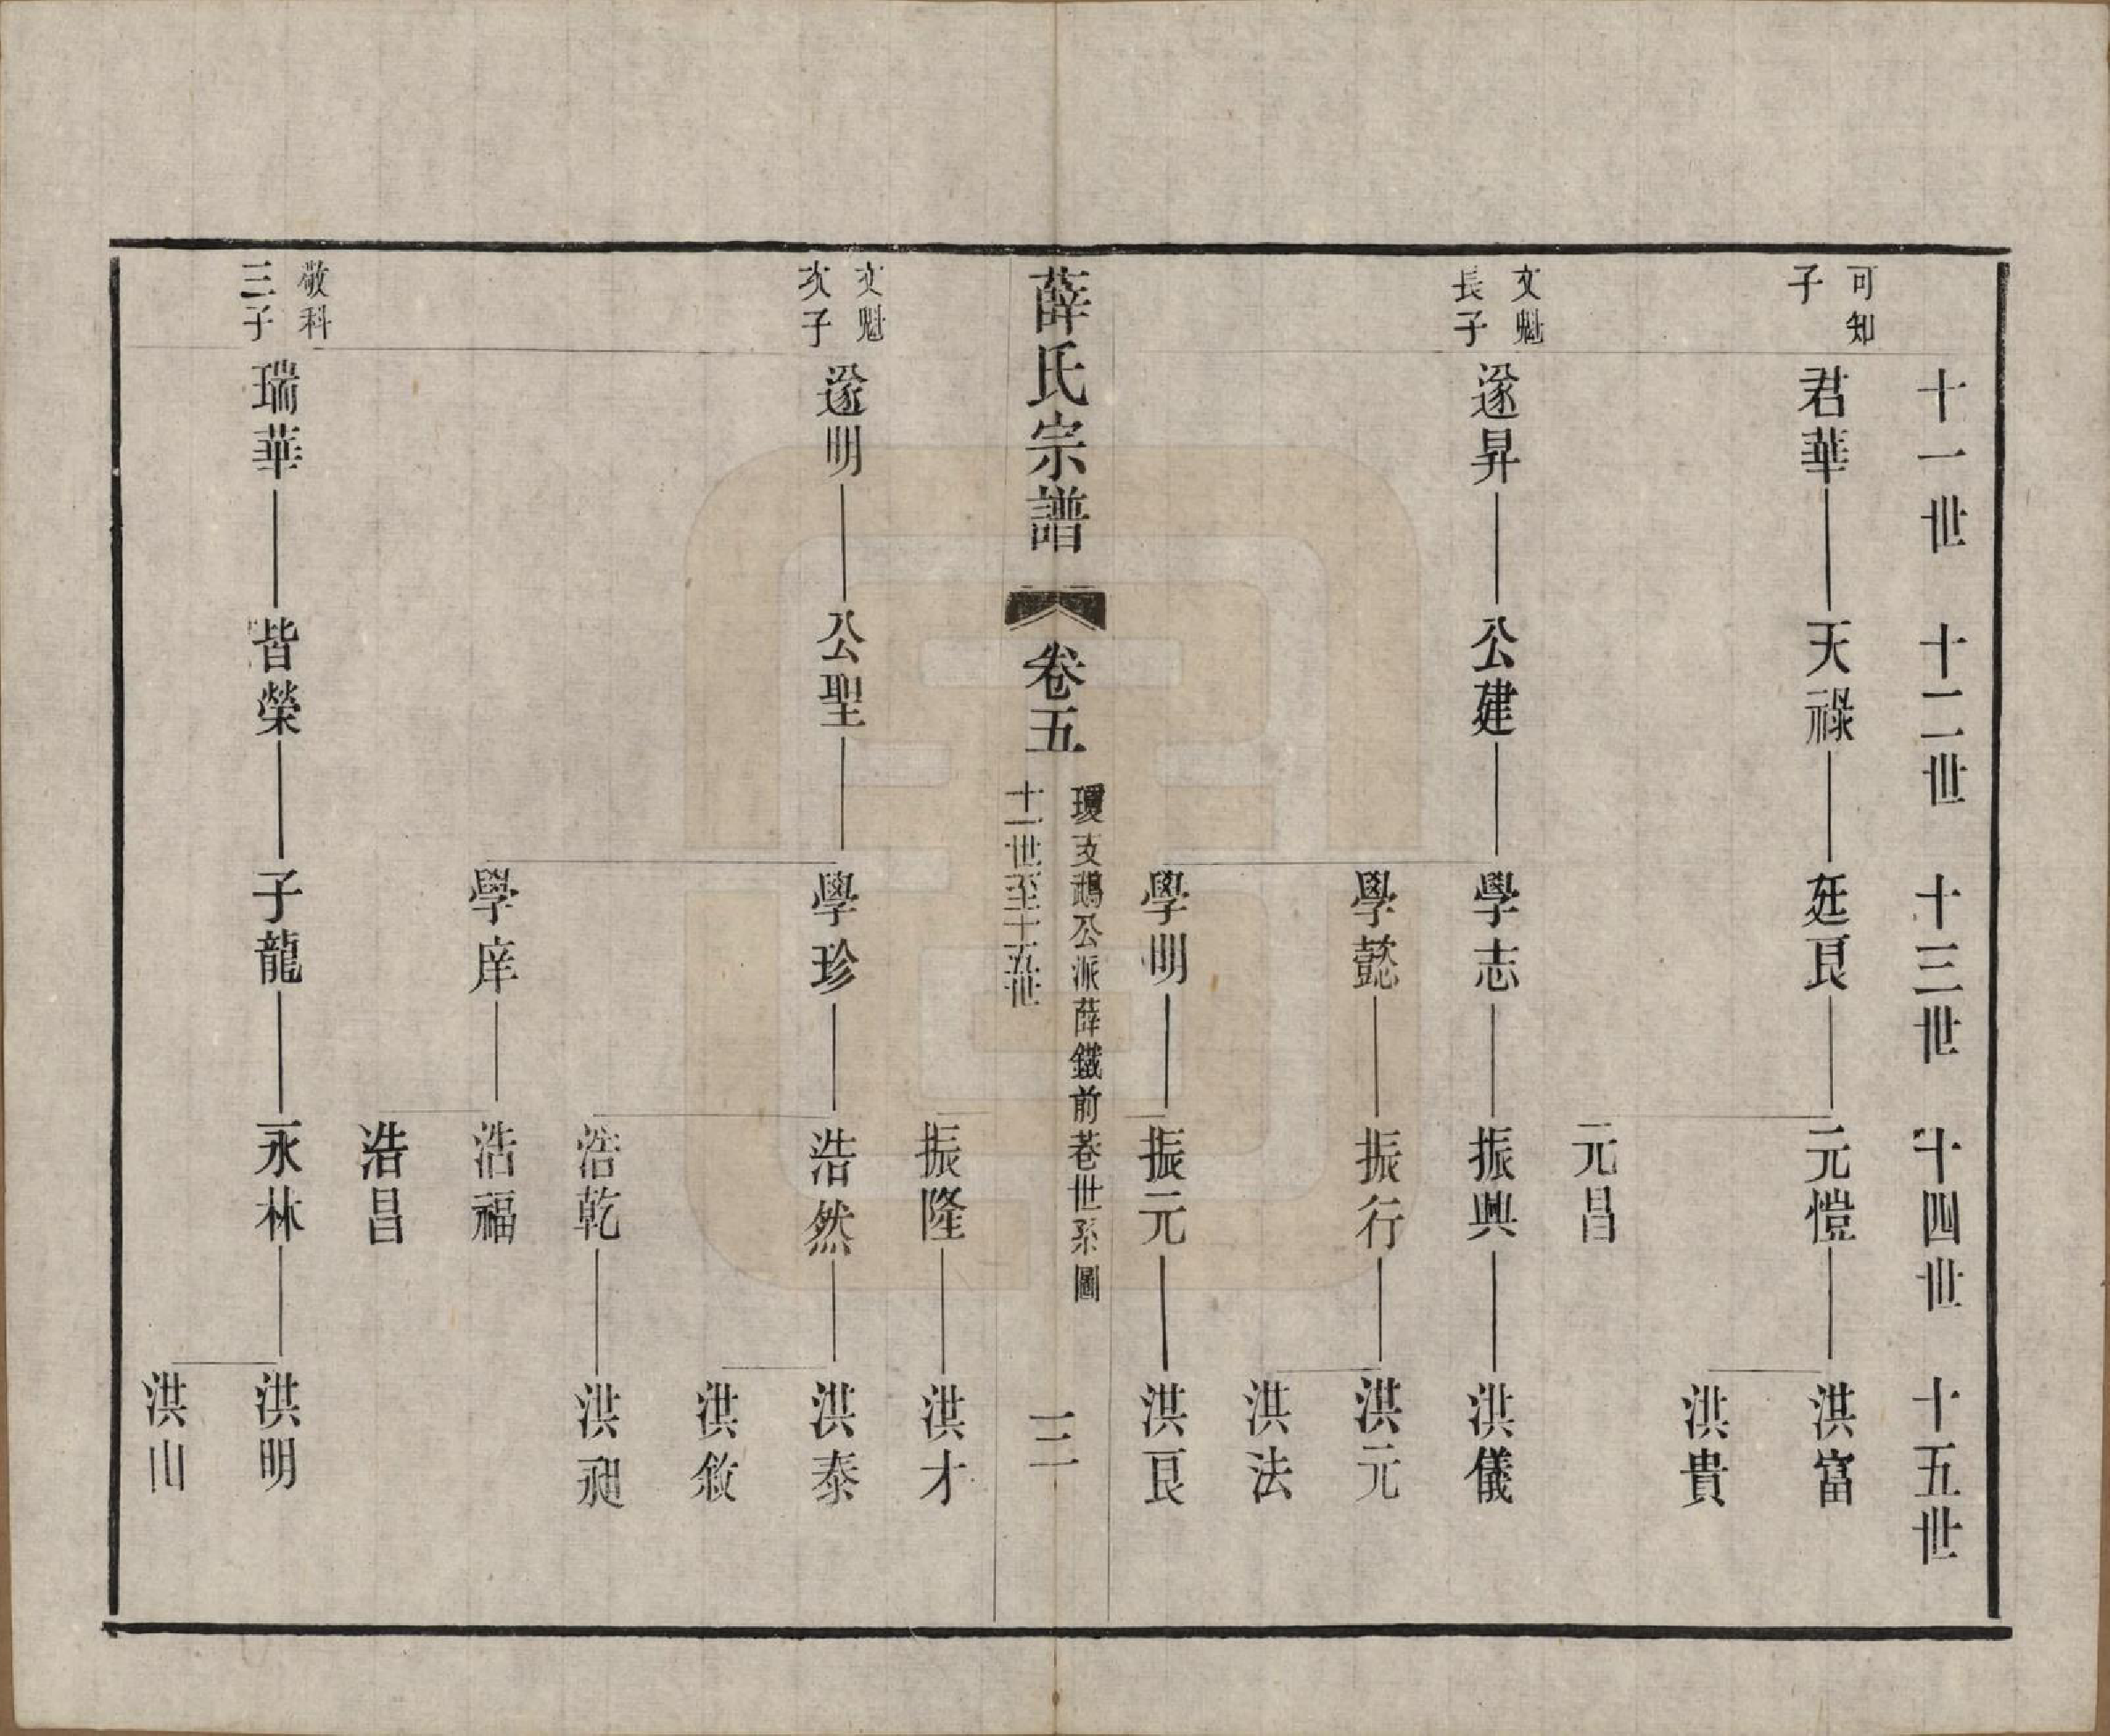 十一世 十二世 十三世 十四世 十五世
可知
子
君華 天祿 廷良 元愷 洪富
洪貴
元昌
文魁
長子
遂昇 公建 學志 振興 洪儀
學懿 振行 洪元
洪法
學明 振元 洪良
薛氏宗譜 卷五 三
瓊支鵝公派薛鐵前巷世系圖
十一世至十五世
振隆 洪才
文魁
次子
遂明 公聖 學珍 浩然 洪泰
洪敘
浩乾 洪昶
學庠 浩福
浩昌
敬科
三子
瑞華 皆榮 子龍 永林 洪明
洪川